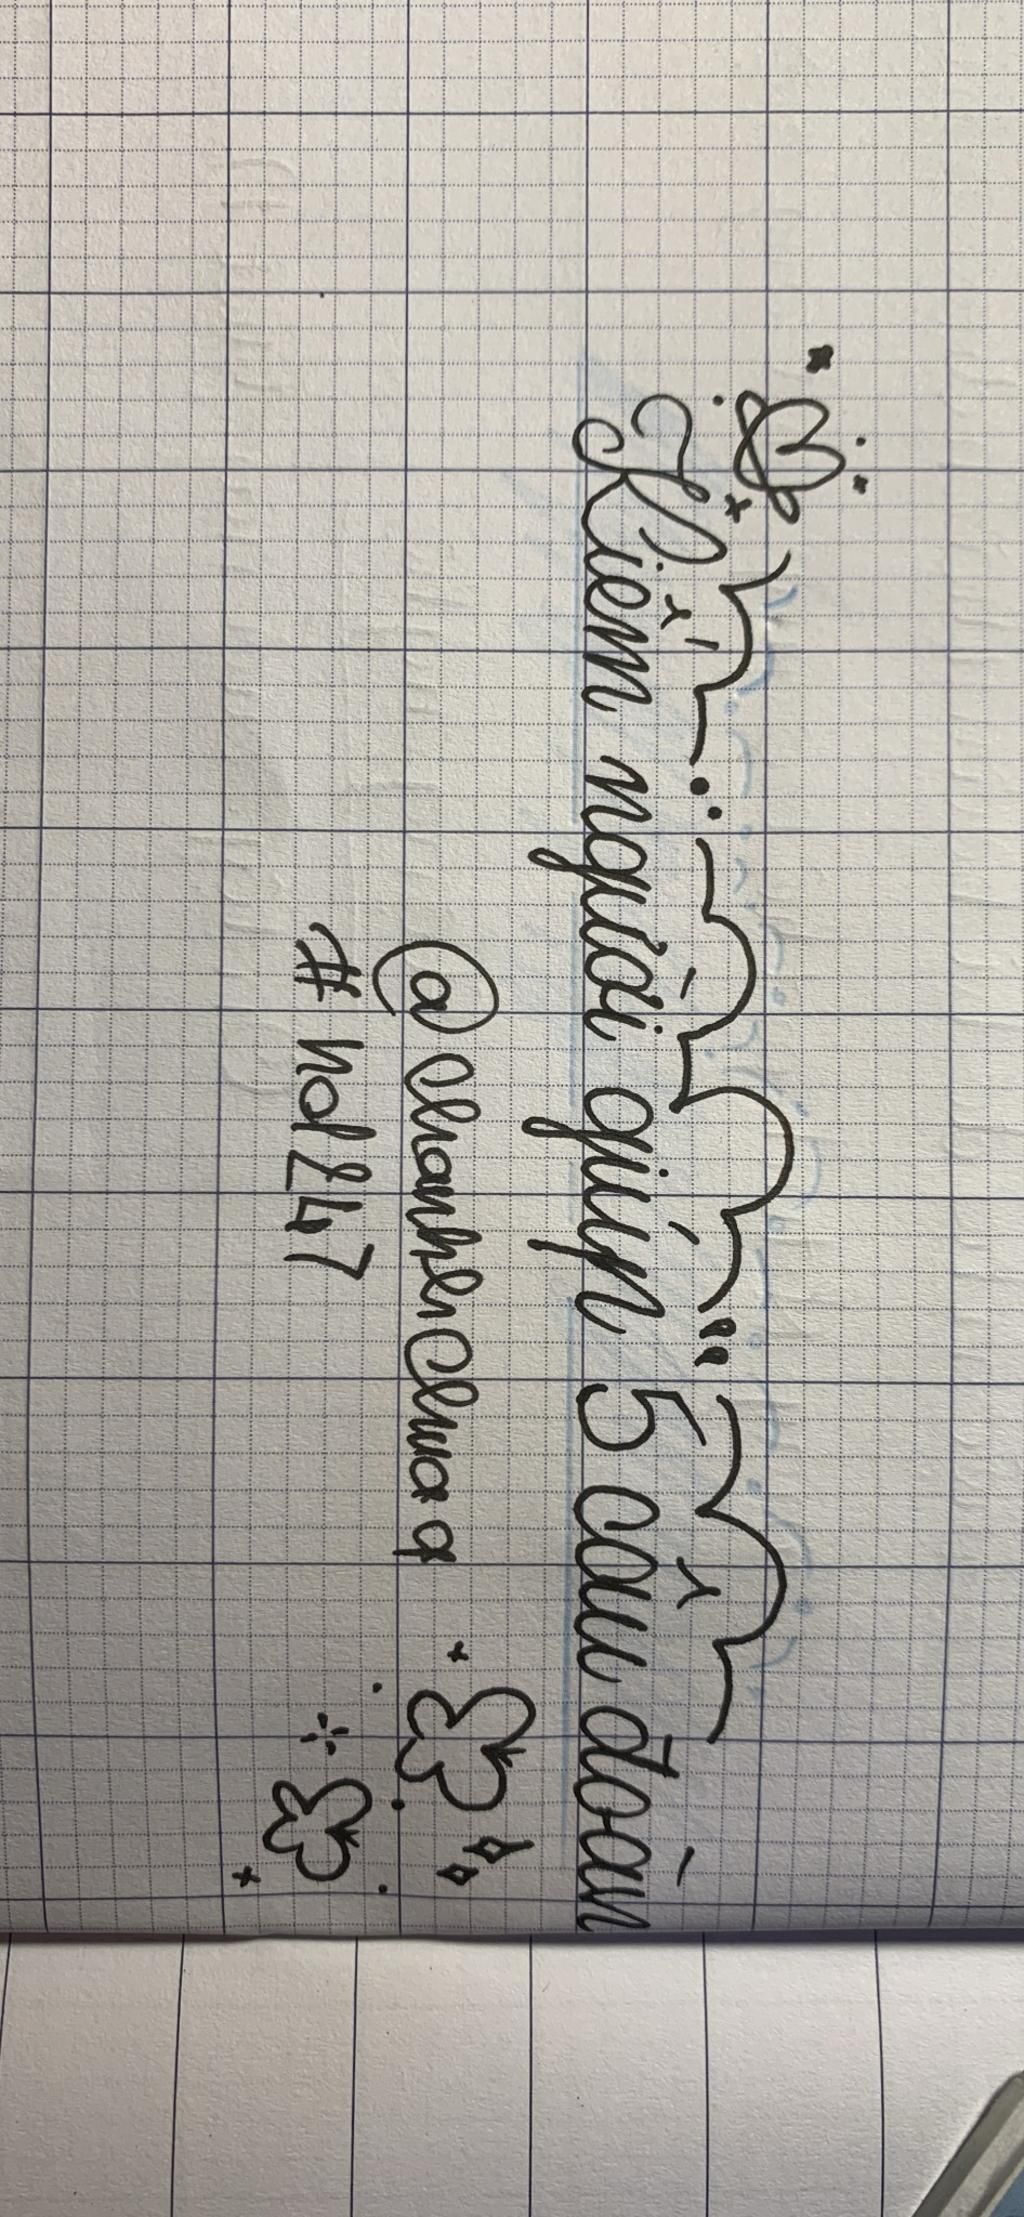 Kiếm người giúp 5 câu đoàn
@chanhichuaq
#hol247